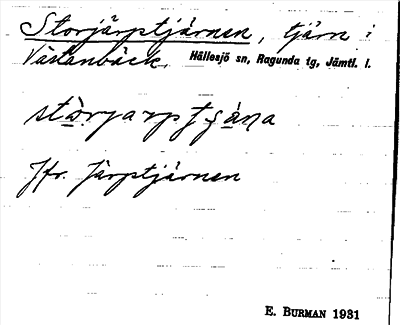 Storjärptjärnen, tjärn i
Västanbäck. Hällesjö sn, Ragunda tg, Jämtl. l.
Jfr. Järptjärnen
E. BURMAN 1931